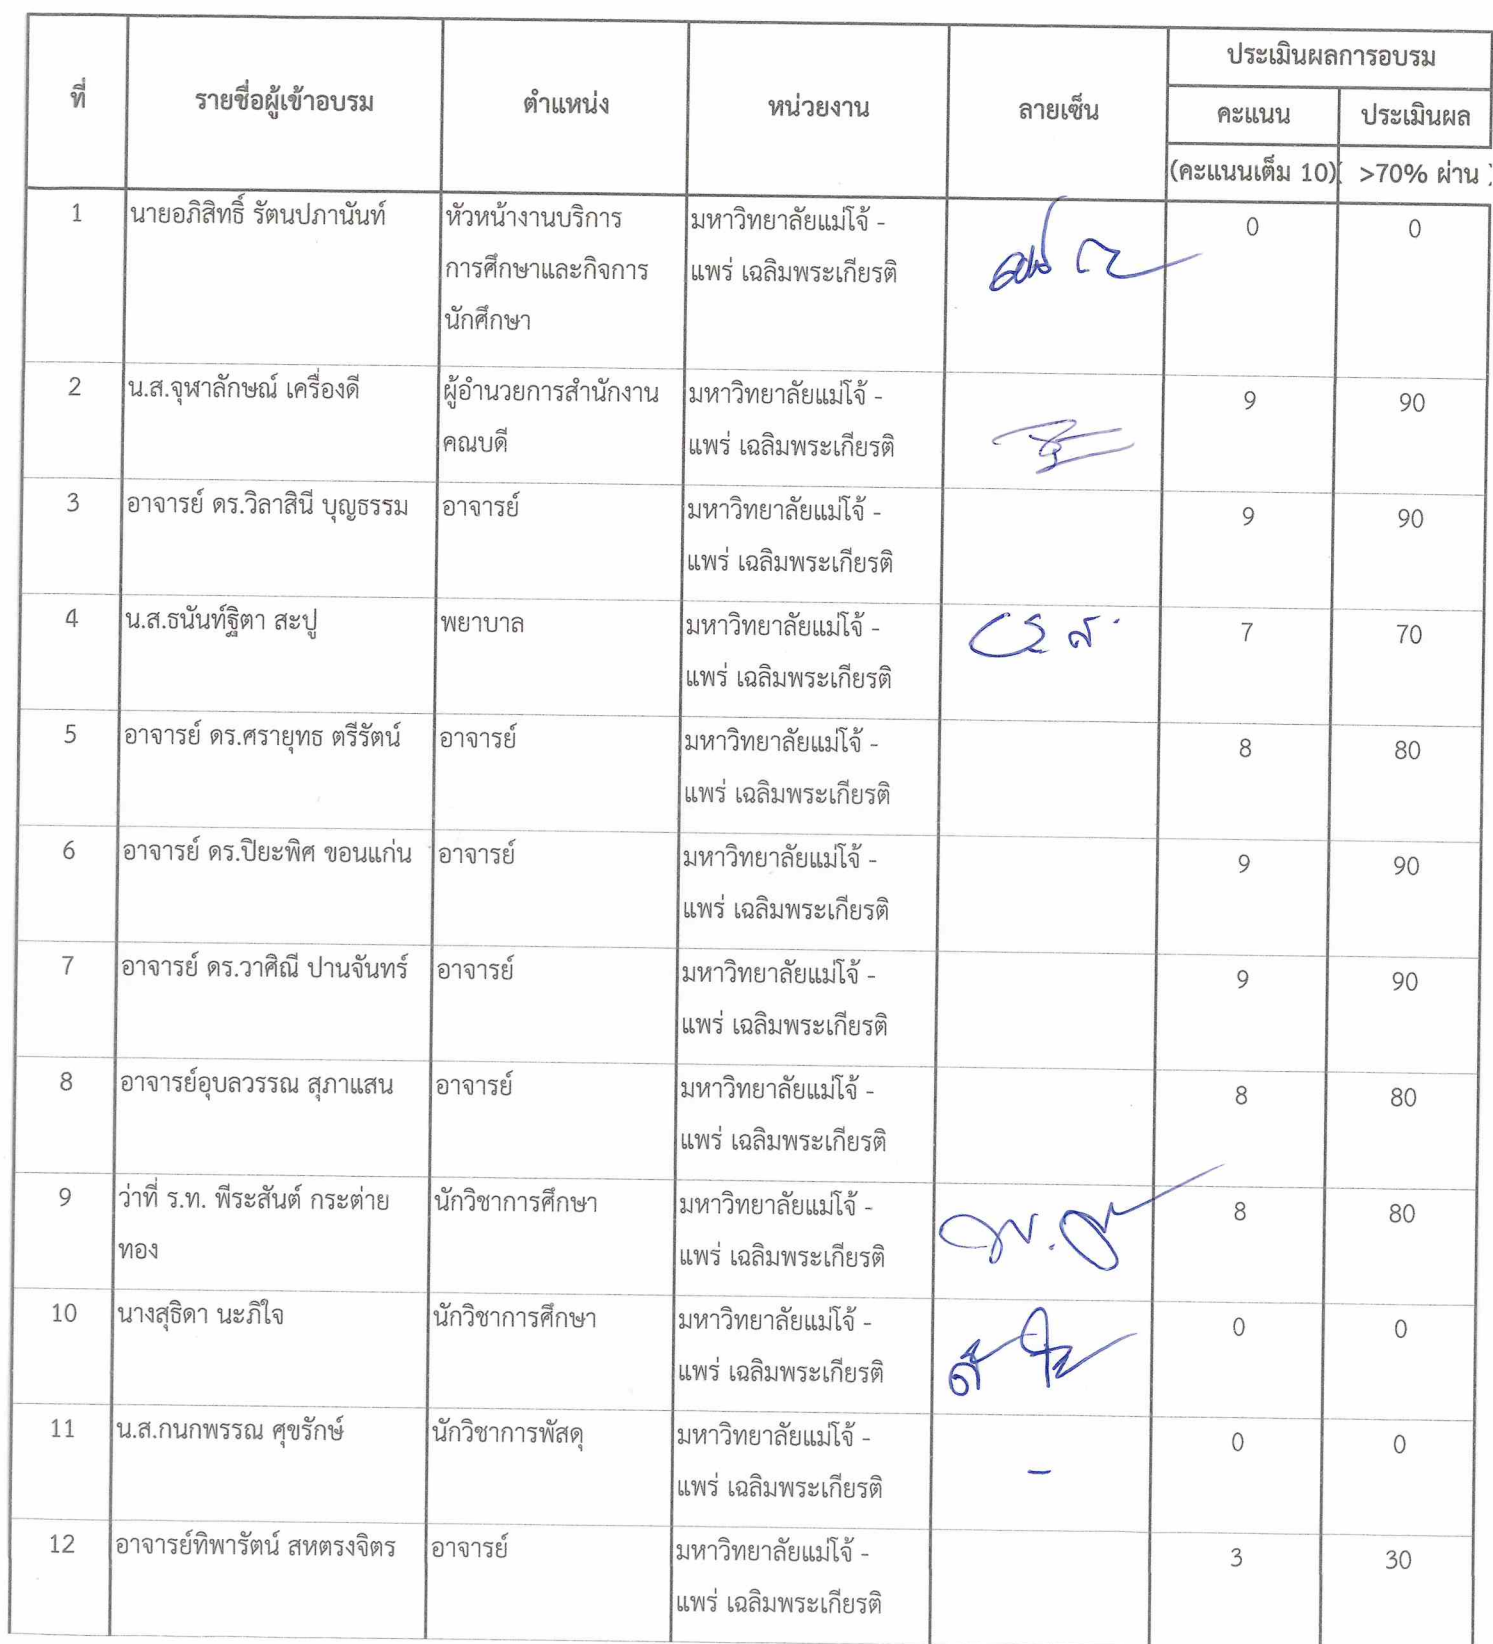 ที่ รายชื่อผู้เข้าอบรม ตำแหน่ง หน่วยงาน ลายเซ็น ประเมินผลการอบรม
คะแนน ประเมินผล
(คะแนนเต็ม 10) ( >70% ผ่าน )
1 นายอภิสิทธิ์ รัตนปภานันท์ หัวหน้างานบริการ มหาวิทยาลัยแม่โจ้ - 0 0
การศึกษาและกิจการ แพร่ เฉลิมพระเกียรติ
นักศึกษา
2 น.ส.จุฬาลักษณ์ เครื่องดี ผู้อำนวยการสำนักงาน มหาวิทยาลัยแม่โจ้ - 9 90
คณบดี แพร่ เฉลิมพระเกียรติ
3 อาจารย์ ดร.วิลาสินี บุญธรรม อาจารย์ มหาวิทยาลัยแม่โจ้ - 9 90
แพร่ เฉลิมพระเกียรติ
4 น.ส.ธนันท์ฐิตา สะปู พยาบาล มหาวิทยาลัยแม่โจ้ - 7 70
แพร่ เฉลิมพระเกียรติ
5 อาจารย์ ดร.ศรายุทธ ตรีรัตน์ อาจารย์ มหาวิทยาลัยแม่โจ้ - 8 80
แพร่ เฉลิมพระเกียรติ
6 อาจารย์ ดร.ปิยะพิศ ขอนแก่น อาจารย์ มหาวิทยาลัยแม่โจ้ - 9 90
แพร่ เฉลิมพระเกียรติ
7 อาจารย์ ดร.วาศิณี ปานจันทร์ อาจารย์ มหาวิทยาลัยแม่โจ้ - 9 90
แพร่ เฉลิมพระเกียรติ
8 อาจารย์อุบลวรรณ สุภาแสน อาจารย์ มหาวิทยาลัยแม่โจ้ - 8 80
แพร่ เฉลิมพระเกียรติ
9 ว่าที่ ร.ท. พีระสันต์ กระต่าย นักวิชาการศึกษา มหาวิทยาลัยแม่โจ้ - 8 80
ทอง แพร่ เฉลิมพระเกียรติ
10 นางสุธิดา นะภิใจ นักวิชาการศึกษา มหาวิทยาลัยแม่โจ้ - 0 0
แพร่ เฉลิมพระเกียรติ
11 น.ส.กนกพรรณ ศุขรักษ์ นักวิชาการพัสดุ มหาวิทยาลัยแม่โจ้ - 0 0
แพร่ เฉลิมพระเกียรติ -
12 อาจารย์ทิพารัตน์ สหตรงจิตร อาจารย์ มหาวิทยาลัยแม่โจ้ - 3 30
แพร่ เฉลิมพระเกียรติ